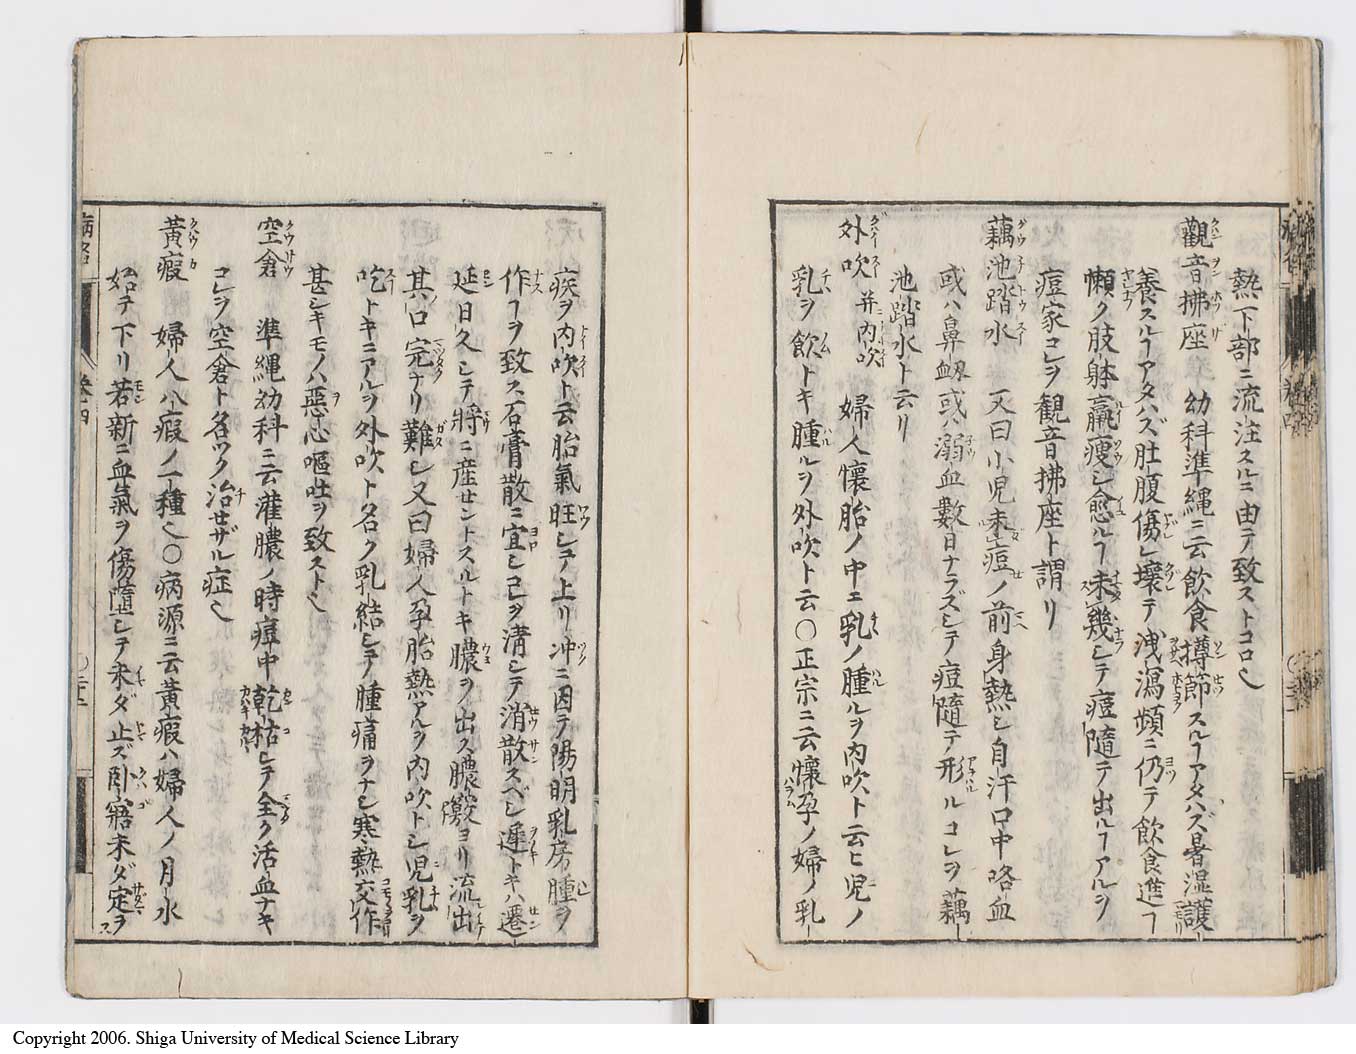 熱下部ニ流注スルニ由テ致ストコロ也
觀音拂座 幼科準縄ニ云飲食撙節スルヿアタハズ暑湿護
養スルヿアタハズ肚腹傷レ壊テ洩瀉頻ニ仍テ飲食進ヿ
懶ク肢躰羸瘦シ愈ルヿ未幾シテ痘隨テ出ルヿアルヲ
痘家コレヲ観音拂座ト謂リ
藕池踏水 又曰小児未痘ノ前身熱シ自汗口中咯血
或ハ鼻衂或ハ溺血數日ナラズシテ痘隨テ形ルコレヲ藕
池踏水ト云リ
外吹 并内吹 婦人懐胎ノ中ニ乳ノ腫ルヲ内吹ト云ヒ児ノ
乳ヲ飲トキ腫ルヲ外吹ト云〇正宗ニ云懐孕ノ婦ノ乳
疾ヲ内吹ト云胎氣旺シテ上リ冲ニ因テ陽明乳房腫ヲ
作ヿヲ致ス石膏散ニ宜シ已ヲ清シテ消散スベシ遲トキハ遷
延日久シテ將ニ産セントスルトキ膿ヲ出ス膿竅ヨリ流出
其口完ナリ難シ又曰婦人孕胎熱アルヲ内吹トシ児乳ヲ
吃トキニアルヲ外吹ト名ク乳結シテ腫痛ヲナシ寒熱交作
甚シキモノハ惡心嘔吐ヲ致スト也
空倉 準縄幼科ニ云灌膿ノ時痘中乾枯シテ全ク活血ナキ
コレヲ空倉ト名ツク治セザル症也
黃瘕 婦人八瘕ノ一種也〇病源ニ云黃瘕ハ婦人ノ月水
始テ下リ若新ニ血氣ヲ傷隨シテ未ダ止ズ卧寤未ダ定ヲ
病名
巻四
Copyright 2006. Shiga University of Medical Science Library